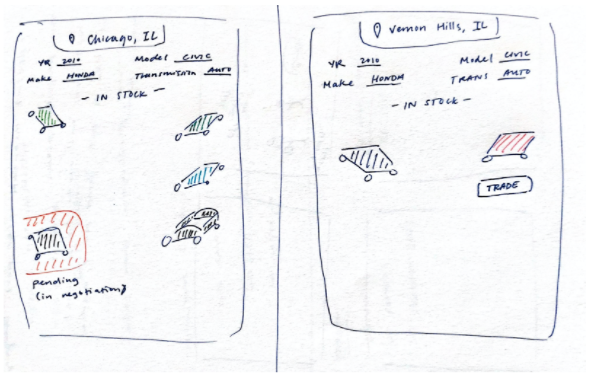 Chicago, IL
YR 2010 Model CIVIC
Make HONDA Transmission AUTO
- IN STOCK -
pending
(in negotiation)
Vernon Hills, IL
YR 2010 Model CIVIC
Make HONDA TRANS AUTO
- IN STOCK -
TRADE